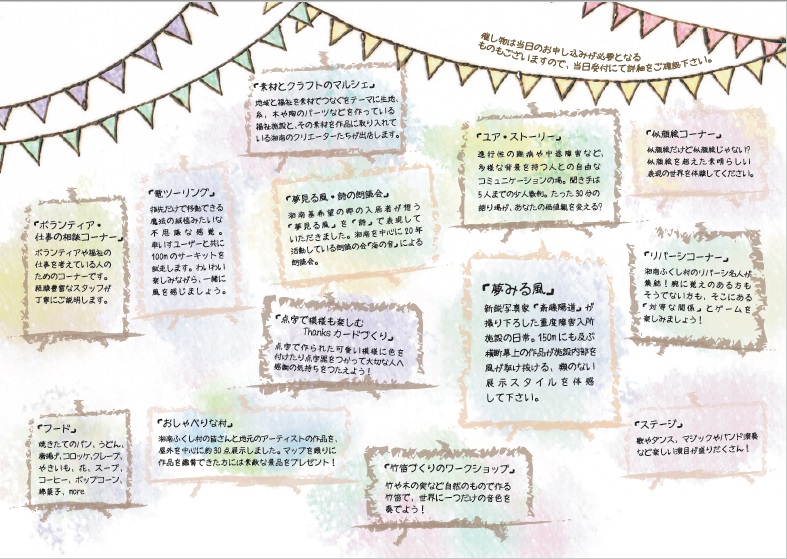 催し物は当日のお申し込みが必要となる
ものもございますので、当日受付にて詳細をご確認下さい。
「素材とクラフトのマルシェ」
地域と福祉を素材でつなぐをテーマに生地、
糸、木や陶のパーツなどを作っている
福祉施設と、その素材を作品に取り入れて
いる湘南のクリエーターたちが出店します。
「ユア・ストーリー」
進行性の難病や中途障害など、
多様な背景を持つ人との自由な
コミュニケーションの場。聞き手は
5人までの少人数制。たった30分の
語り場が、あなたの価値観を変える?
「似顔絵コーナー」
似顔絵だけど似顔絵じゃない!?
似顔絵を超えた素晴らしい
表現の世界を体験してください。
「ボランティア・
仕事の相談コーナー」
ボランティアや福祉の
仕事を考えている人の
ためのコーナーです。
経験豊富なスタッフが
丁寧にご説明します。
「竜ツーリング」
指先だけで移動できる
魔法の絨毯みたいな
不思議な感覚。
車いすユーザーと共に
100mのサーキットを
試走します。わいわい
楽しみながら、一緒に
風を感じましょう。
「夢見る風・詩の朗読会」
湘南希望の郷の入居者が想う
「夢見る風」を「詩」で表現して
いただきました。湘南を中心に20年
活動している朗読の会「海の音」による
朗読会。
「点字で模様も楽しむ
Thanksカードづくり」
点字で作られた可愛い模様に色を
付けたり点字器をつかって大切な人へ
感謝の気持ちをつたえよう!
「夢みる風」
新鋭写真家「斎藤陽道」が
撮り下ろした重度障害入所
施設の日常。150mにも及ぶ
横断幕上の作品が施設内部を
風が駆け抜ける、類のない
展示スタイルを体感
して下さい。
「リバーシコーナー」
湘南ふくし村のリバーシ名人が
集結!腕に覚えのある方も
そうでない方も、そこにある
「対等な関係」とゲームを
楽しみましょう!
「フード」
焼きたてのパン、うどん、
唐揚げ、コロッケ、クレープ、
やきいも、花、スープ、
コーヒー、ポップコーン、
綿菓子、more
「おしゃべりな村」
湘南ふくし村の皆さんと地元のアーティストの作品を、
屋外を中心に約30点展示しました。マップを頼りに
作品を鑑賞できた方には素敵な景品をプレゼント!
「竹笛づくりのワークショップ」
竹や木の実など自然のもので作る
竹笛で、世界に一つだけの音色を
奏でよう!
「ステージ」
歌やダンス、マジックやバンド演奏
など楽しい演目が盛りだくさん!